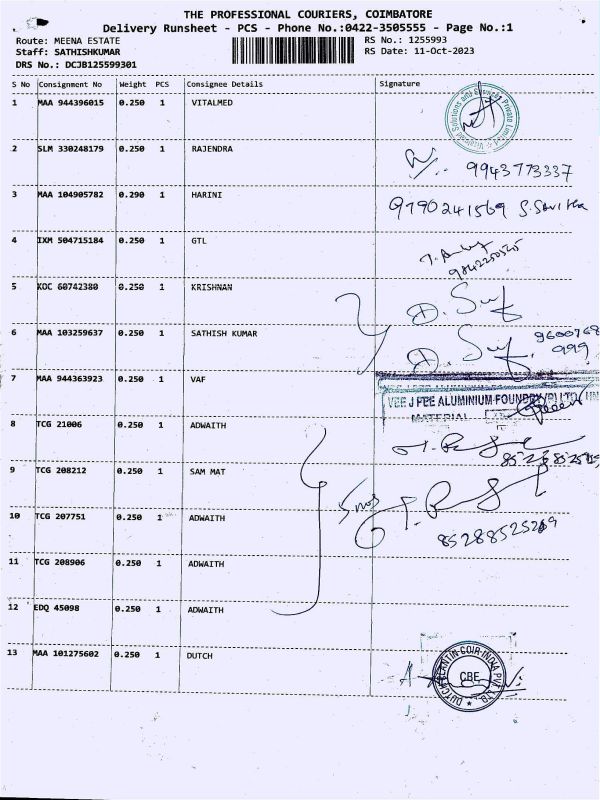 THE PROFESSIONAL COURIERS, COIMBATORE
Delivery Runsheet - PCS - Phone No.:0422-3505555 - Page No.:1
Route: MEENA ESTATE RS No.: 1255993
Staff: SATHISHKUMAR RS Date: 11-Oct-2023
DRS No.: DCJB125599301
S No Consignment No Weight PCS Consignee Details Signature
1 MAA 944396015 0.250 1 VITALMED
2 SLM 330248179 0.250 1 RAJENDRA
9943773337
3 MAA 104905782 0.290 1 HARINI
9790241569 S.Savitha
4 IXM 504715184 0.250 1 GTL
9842250525
5 KOC 60742380 0.250 1 KRISHNAN
6 MAA 103259637 0.250 1 SATHISH KUMAR
9600768
999
7 MAA 944363923 0.250 1 VAF
VEE J PEE ALUMINIUM FOUNDRY
MATERIAL
8 TCG 21006 0.250 1 ADWAITH
9 TCG 208212 0.250 1 SAM MAT
10 TCG 207751 0.250 1 ADWAITH
85288525269
11 TCG 208906 0.250 1 ADWAITH
12 EDQ 45098 0.250 1 ADWAITH
13 MAA 101275602 0.250 1 DUTCH
CBE